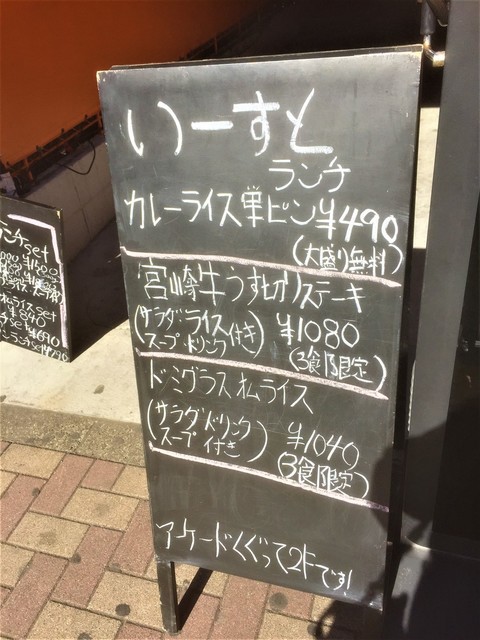 いーすと
ランチ
カレーライス単ピン ¥490
(大盛り無料)
宮崎牛うす切りステーキ
(サラダ・ライス
スープ・ドリンク付き) ¥1080
(3食限定)
ドミグラスオムライス
(サラダ・ドリンク
スープ付き) ¥1040
(3食限定)
アーケードくぐって2Fです!
ランチset
オムライスset
¥840